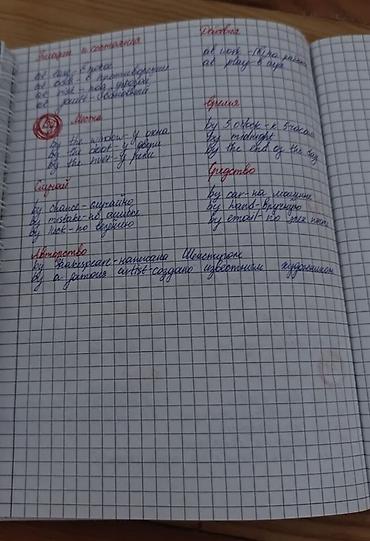 Эмоции и состояния
at ease - в покое
at odds - в противоречии
at risk - под угрозой
at fault - виновный
Действия
at work - быть занятым
at play - в игре
Место
by the window - у окна
by the door - у двери
by the river - у реки
Время
by 5 o'clock - к 5 часам
by midnight
by the end of the day
Случай
by chance - случайно
by mistake - по ошибке
by luck - по везению
Средство
by car - на машине
by hand - вручную
by email - по эл. почте
Авторство
by Shakespeare - написана Шекспиром
by a famous artist - создано известным художником